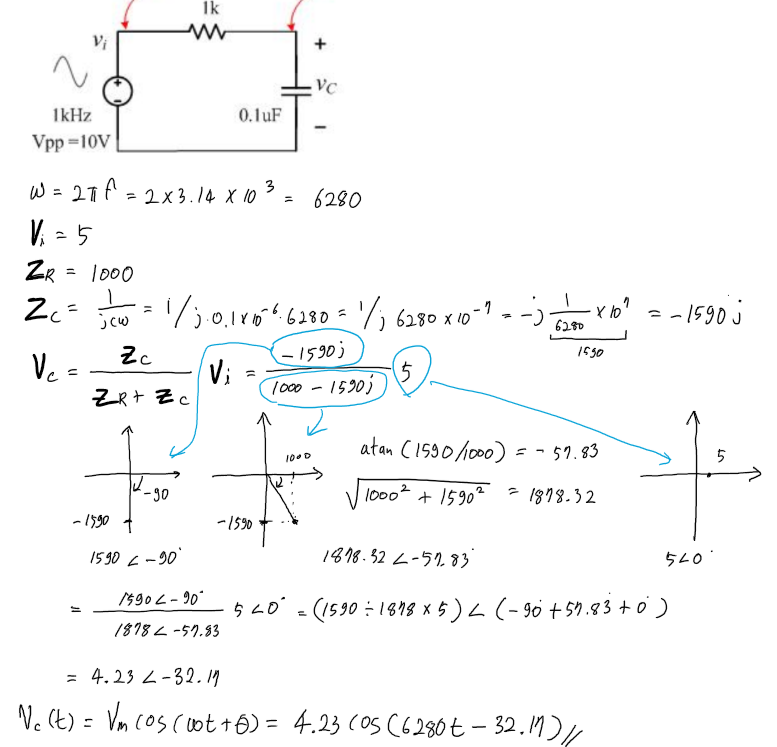 1k
v_i
+
v_C
1kHz
0.1uF
−
Vpp =10V
ω = 2πf = 2×3.14 × 10^3 = 6280
V_i = 5
Z_R = 1000
Z_C = 1/jcω = 1/j·0.1×10^-6·6280 = 1/j 6280×10^-7 = -j 1/6280 ×10^7 = -1590j
1590
V_c = Z_C / Z_R + Z_C V_i = -1590j / 1000 - 1590j 5
-90
-1590
1590∠-90°
1000
-1590
atan (1590/1000) = -57.83
√1000² + 1590² = 1878.32
1878.32∠-57.83°
5
5∠0°
= 1590∠-90° / 1878∠-57.83 5∠0° = (1590÷1878×5)∠(-90°+57.83°+0°)
= 4.23∠-32.17
V_c(t) = V_m cos(ωt+θ) = 4.23 cos(6280t - 32.17)//